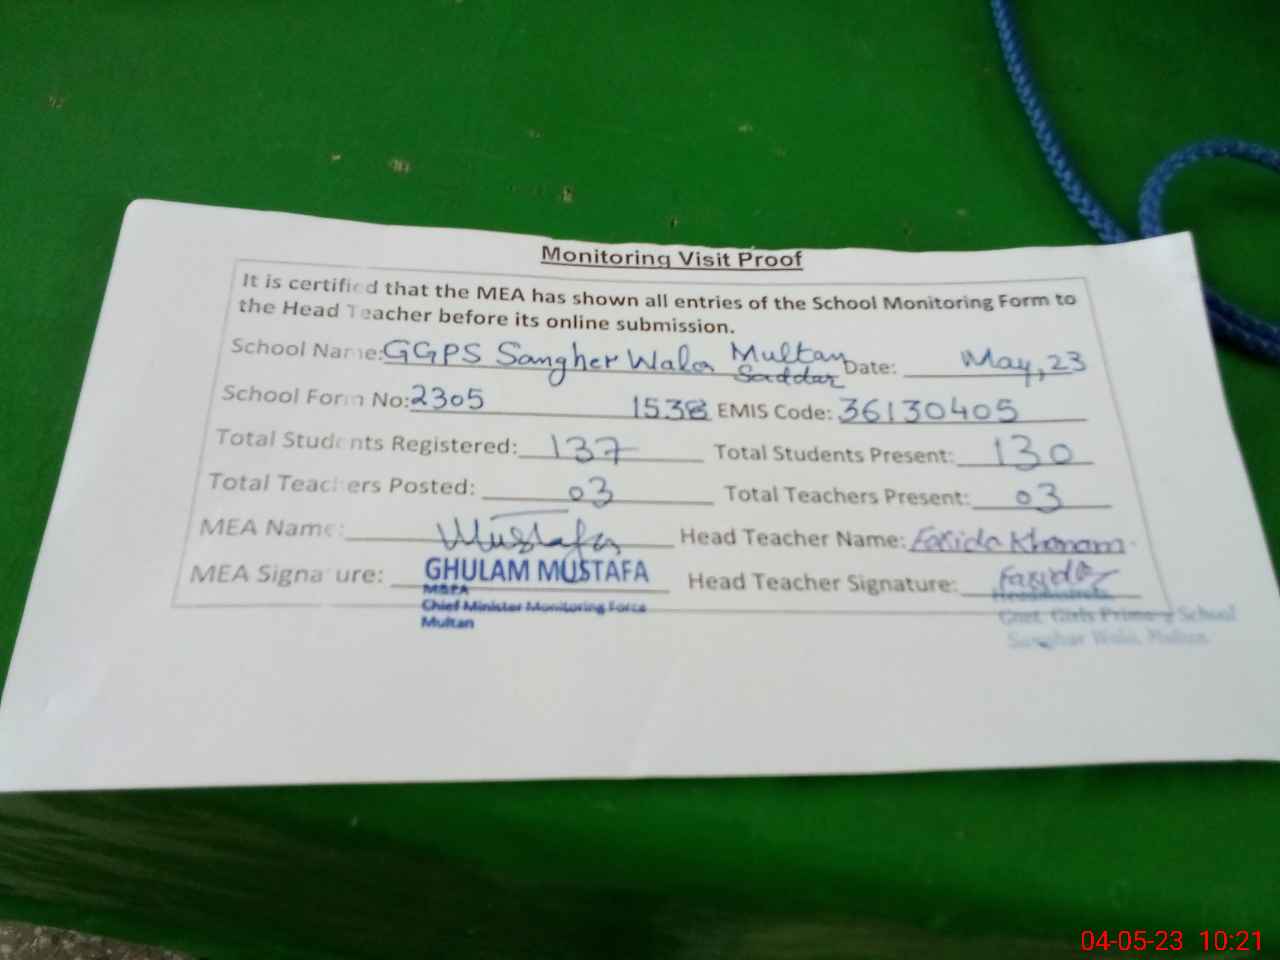 Monitoring Visit Proof
It is certified that the MEA has shown all entries of the School Monitoring Form to
the Head Teacher before its online submission.
School Name: GGPS Sangher Wala Multan Saddar Date: May, 23
School Form No: 2305 1538 EMIS Code: 36130405
Total Students Registered: 137 Total Students Present: 130
Total Teachers Posted: 03 Total Teachers Present: 03
MEA Name: Mustafa Head Teacher Name: Farida Khanam
MEA Signature: GHULAM MUSTAFA Head Teacher Signature: Farida
Chief Minister Monitoring Force
Multan
Headmistress
Govt. Girls Primary School
Sanghar Wala, Multan
04-05-23 10:21